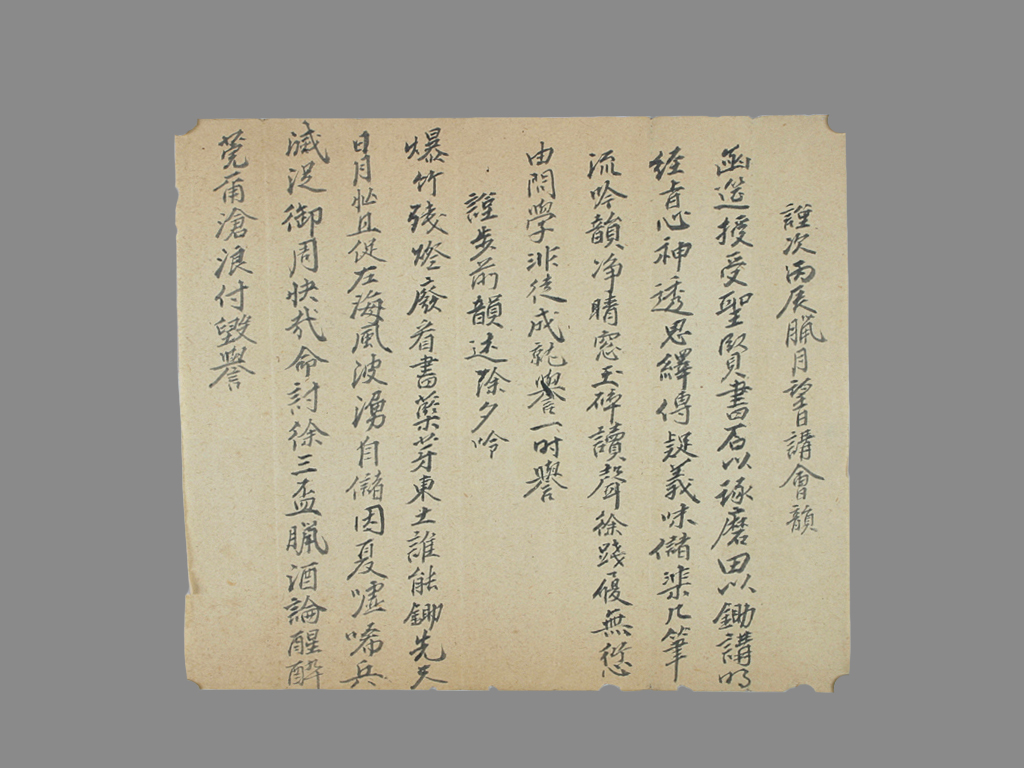 謹次丙辰臘月望日講會韻
函筵授受聖賢書石以琢磨田以鋤講明
經旨心神透思繹傳疑義味儲棐几筆
流吟韻净晴窓玉碎讀聲徐踐履無愆
由問學非徒成就譽一時譽
謹步前韻述除夕吟
爆竹殘燈廢看書藥芽東土誰能鋤先天
日月忙且促左海風波湧自儲因夏噓唏兵
滅足御周快哉命討徐三盃臘酒論醒醉
莞爾滄浪付毀譽